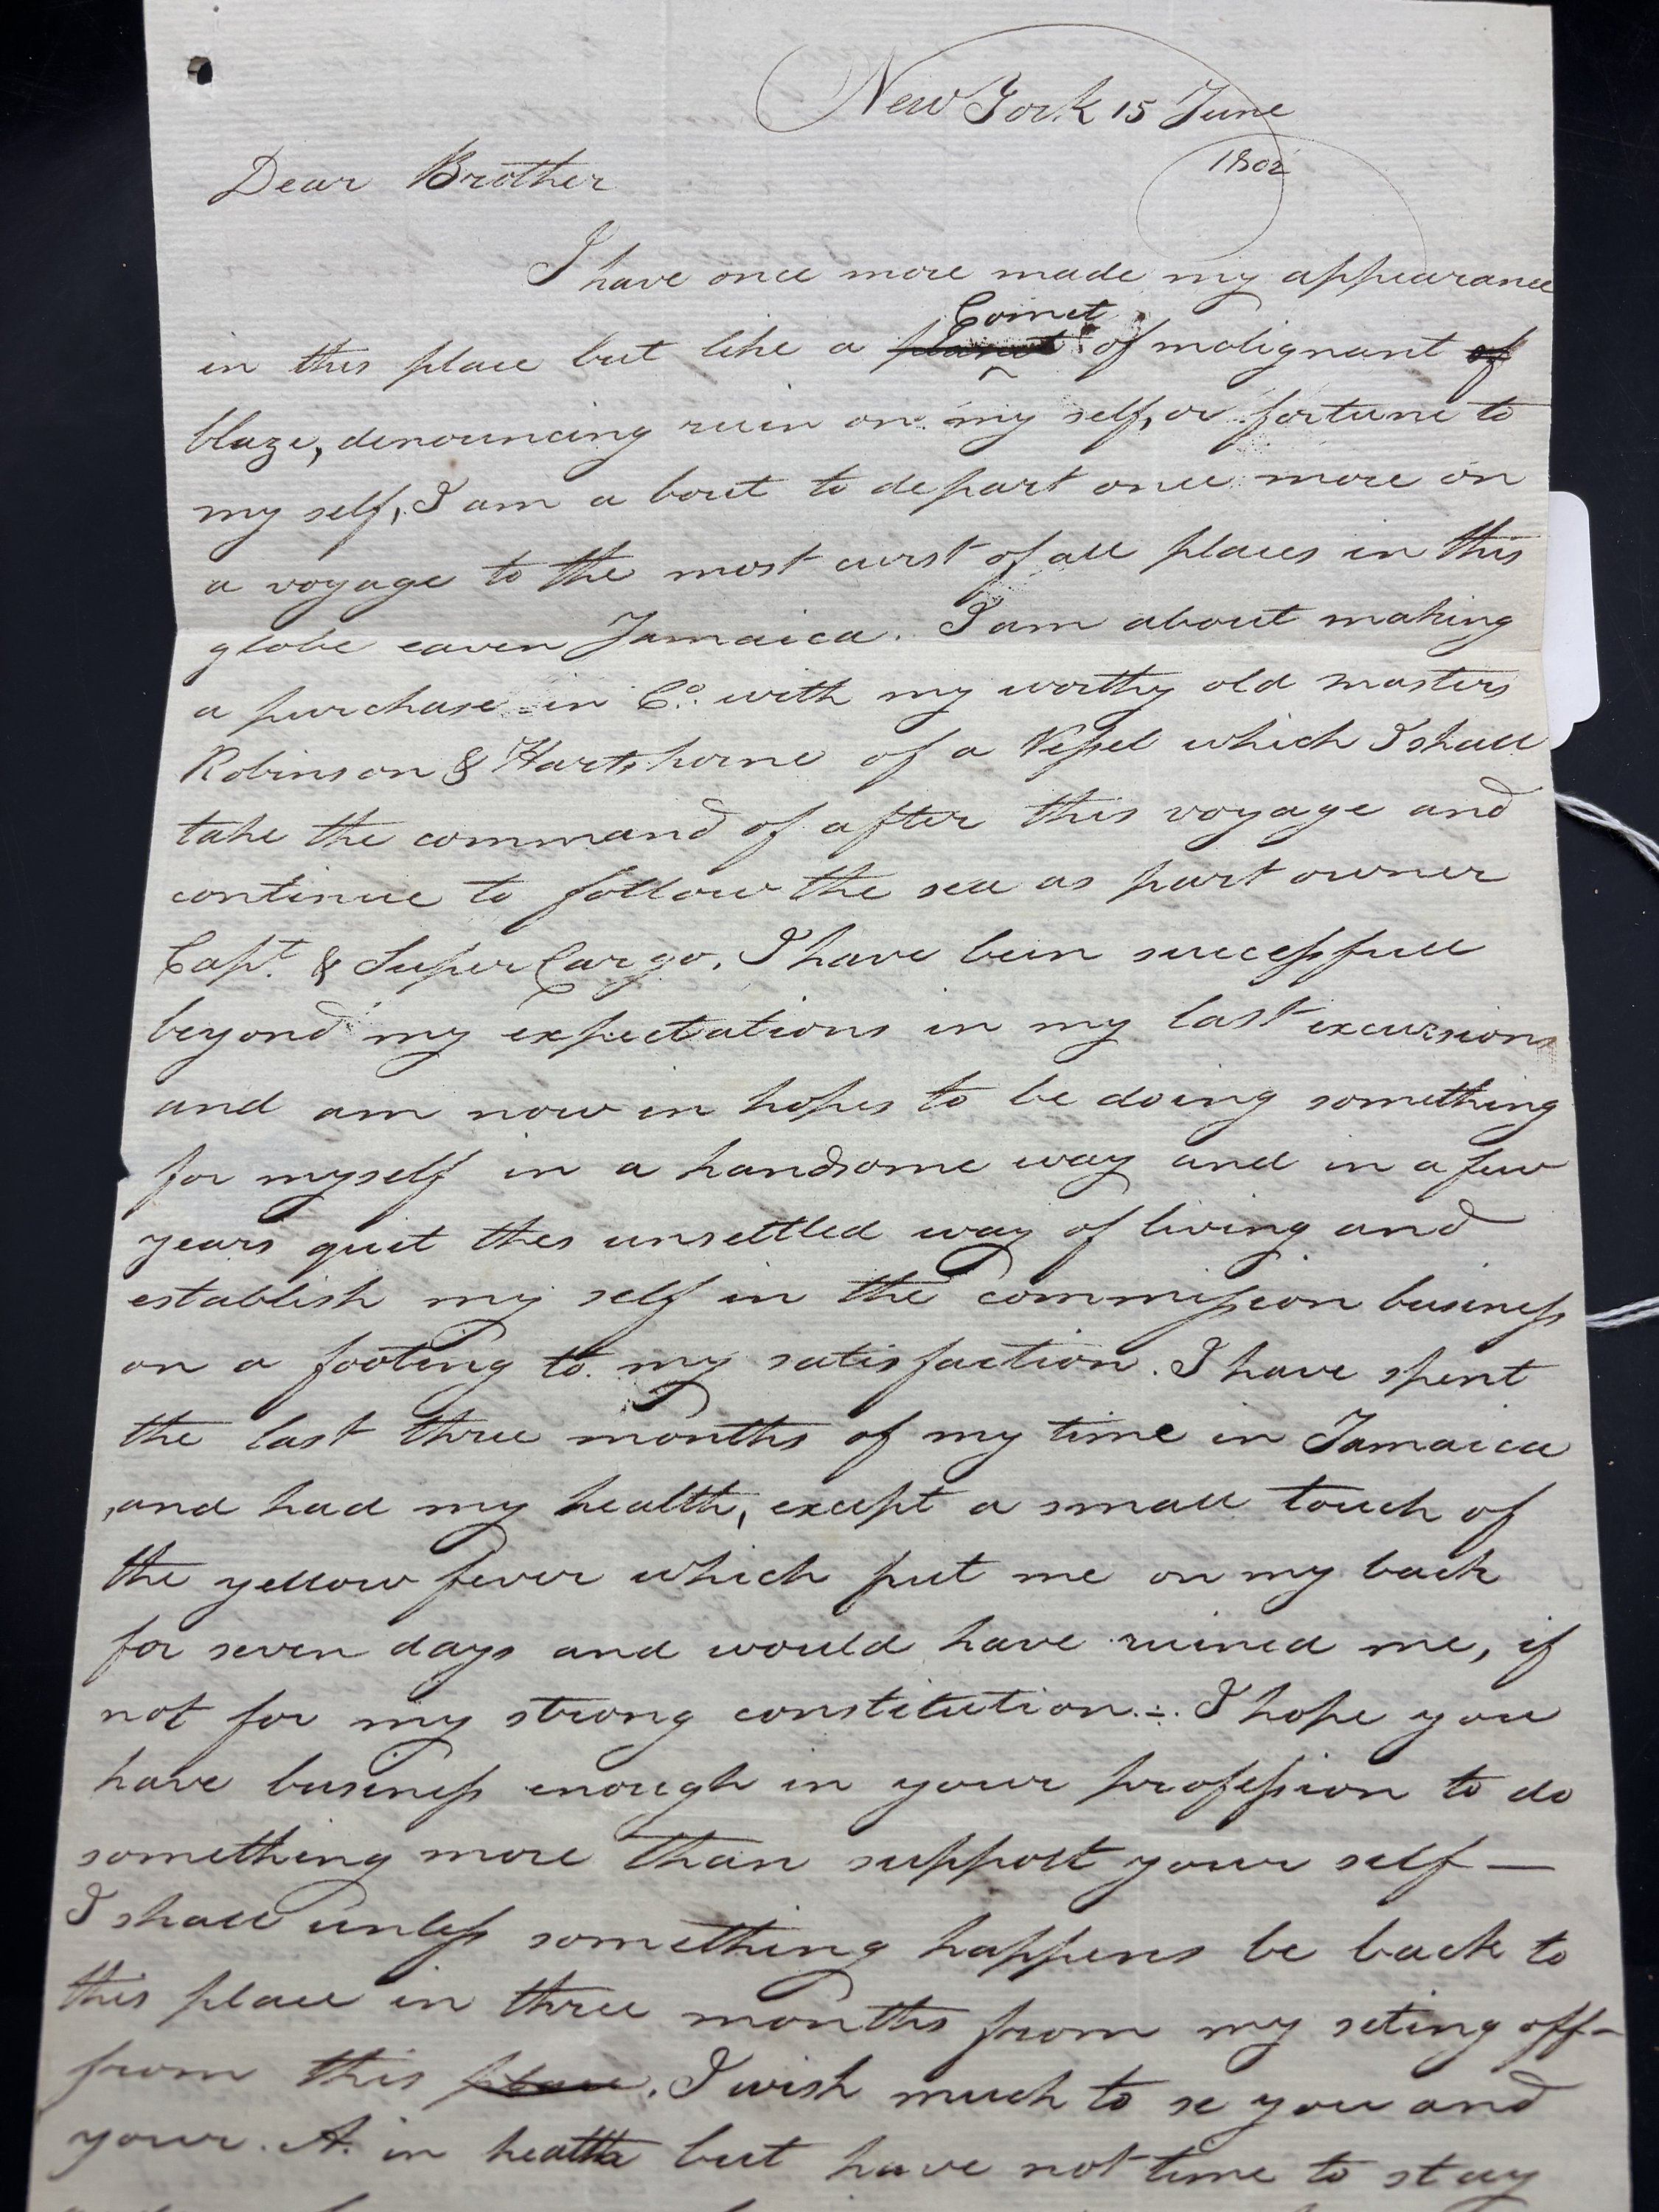 New York 15 June
1802
Dear Brother
I have once more made my appearance
Comet
in this place but like a planet of malignant of
blaze, denouncing ruin on my self, or fortune to
my self, I am a bout to depart once more on
a voyage to the most curst of all places in this
globe eaven Jamaica. I am about making
a purchase in Co. with my worthy old masters
Robinson & Hartshorne of a Vessel which I shall
take the command of after this voyage and
continue to follow the sea as part owner
Capt. & Super Cargo. I have been successfull
beyond my expectations in my last excursions
and am now in hopes to be doing something
for myself in a handsome way and in a few
years quit thes unsettled way of living and
establish my self in the commission business
on a footing to my satisfaction. I have spent
the last three months of my time in Jamaica
and had my health, except a small touch of
the yellow fever which put me on my back
for seven days and would have ruined me, if
not for my strong constitution.÷. I hope you
have business enough in your profession to do
something more than support your self —
I shall unless something happens be back to
this place in three months from my seting off-
from this place. I wish much to se you and
your. A. in health but have not time to stay